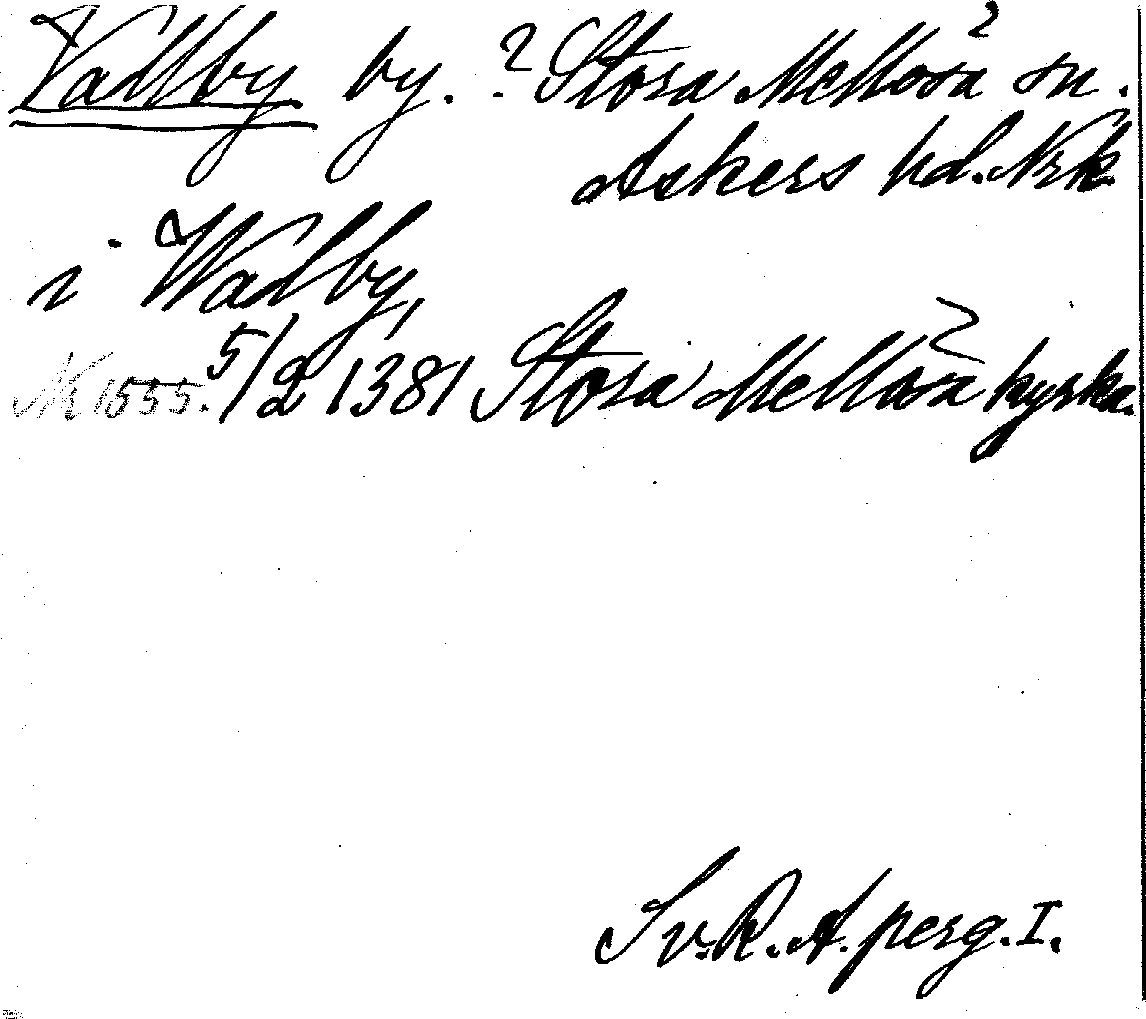 Vadlby by. ? Stora Mellösa sn.
Askers hd. Nrk.
i Wadlby,
N 1555. 5/2 1381 Stora Mellösa kyrka.
Sv. R. A. perg. I.